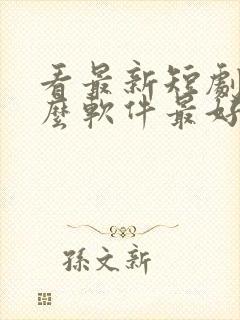 看最新短劇
麼軟件最好
孫文新